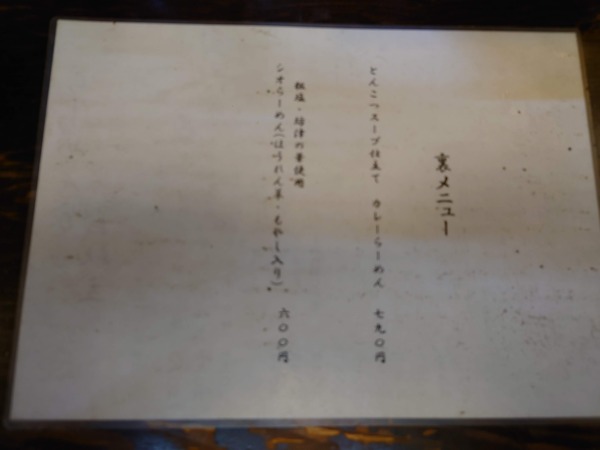 裏メニュー
とんこつスープ仕立て カレーらーめん 七九〇円
シオらーめん(ほうれん草・もやし入り) 六〇〇円